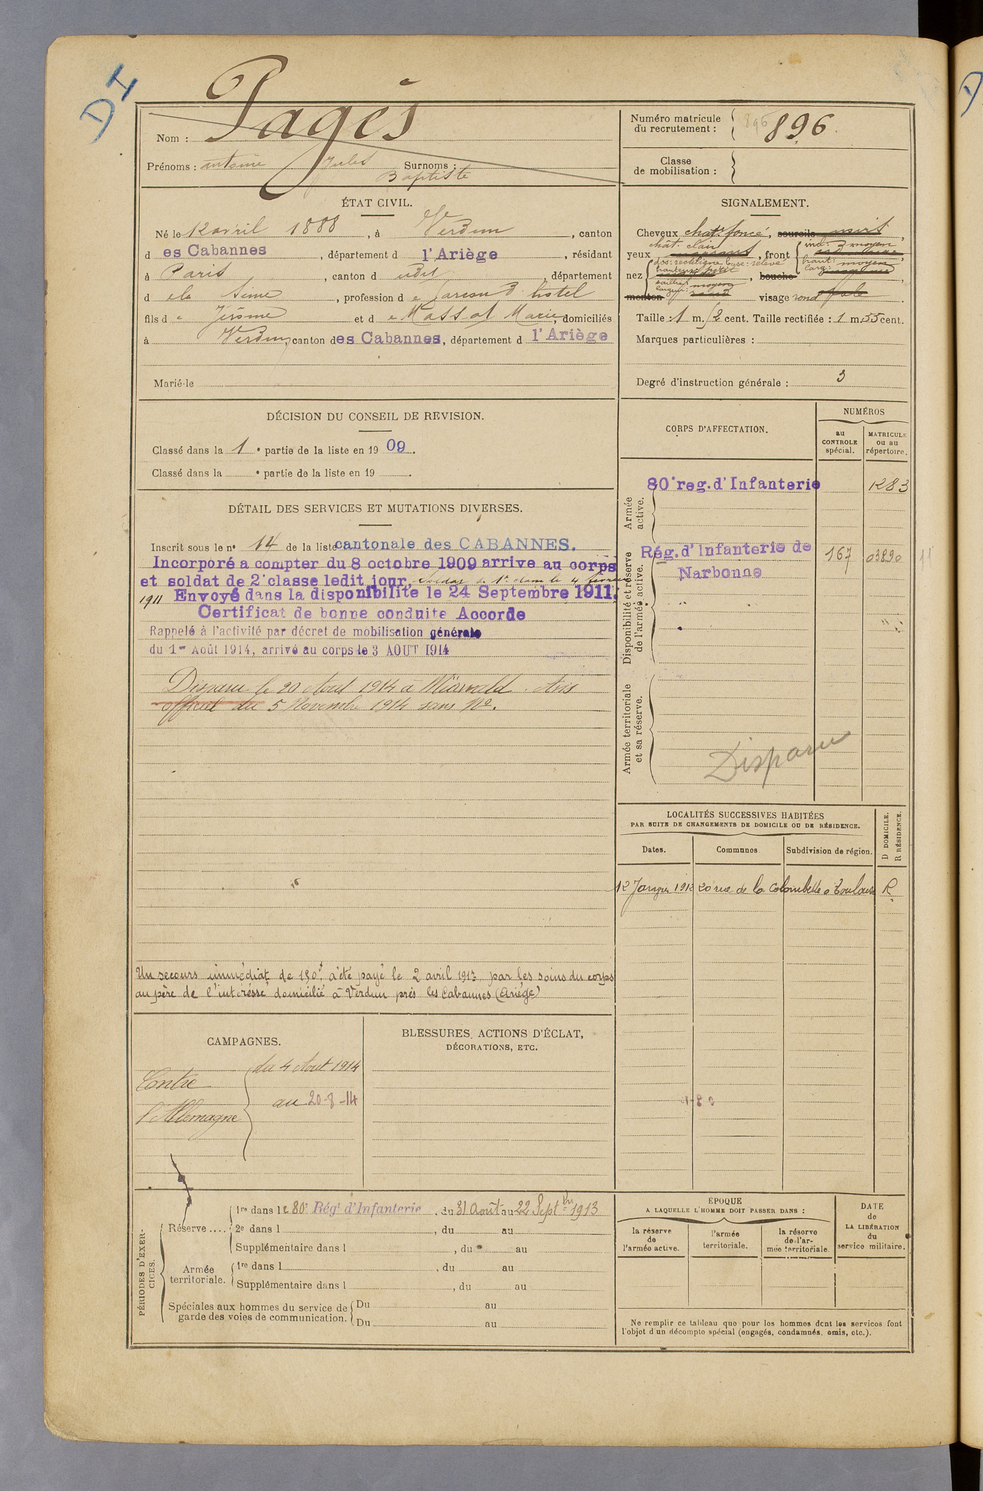 DI
Nom : Pagès
Prénoms : antoine Jules Surnoms :
Baptiste
Numéro matricule
du recrutement : 896 896
Classe
de mobilisation :
ÉTAT CIVIL.
Né le 12 avril 1888, à Verdun, canton
d es Cabannes, département d l'Ariège, résidant
à Paris, canton d udit, département
d e la Seine, profession d e garçon d'hôtel
fils d e Jérôme et d e Massat Marie, domiciliés
à Verdun, canton d es Cabannes, département d l'Ariège
Marié le
SIGNALEMENT.
Cheveux chat. foncé, sourcils noirs
yeux chât. clair, front incl. moyen
haut. moyen
larg.
nez dos: rectiligne base: relevé
bouche
saillie moyen
menton visage rond
Taille : 1 m. 52 cent. Taille rectifiée : 1 m. 55 cent.
Marques particulières :
Degré d'instruction générale : 3
DÉCISION DU CONSEIL DE REVISION.
Classé dans la 1 e partie de la liste en 1909.
Classé dans la e partie de la liste en 19 .
DÉTAIL DES SERVICES ET MUTATIONS DIVERSES.
Inscrit sous le n° 14 de la liste cantonale des CABANNES.
Incorporé a compter du 8 octobre 1909 arrive au corps
et soldat de 2e classe ledit jour. Soldat de 1e classe le 4 février
1911 Envoyé dans la disponibilité le 24 Septembre 1911.
Certificat de bonne conduite Accorde
Rappelé à l'activité par décret de mobilisation générale
du 1er Août 1914, arrivé au corps le 3 AOUT 1914
Disparu le 20 Aout 1914 à Avis
officiel du 5 Novembre 1914 sans No.
Un secours immédiat de 150f a été payé le 2 avril 1917 par les soins du corps
au père de l'intéressé domicilié à Verdun près les Cabannes (Ariège)
CORPS D'AFFECTATION.
NUMÉROS
au
CONTROLE
spécial.
MATRICULE
ou au
répertoire.
Armée
active.
80e reg. d'Infanterie 1283
Disponibilité et réserve
de l'armée active.
Rég. d'Infanterie de 167 03890
Narbonne
Armée territoriale
et sa réserve.
Disparu
LOCALITÉS SUCCESSIVES HABITÉES
PAR SUITE DE CHANGEMENTS DE DOMICILE OU DE RÉSIDENCE.
Dates. Communes. Subdivision de région.
D DOMICILE.
R RÉSIDENCE.
12 Janvier 1912 20 rue de la Colombette à Toulouse R.
CAMPAGNES.
Contre
l'Allemagne
du 4 Aout 1914
au 20-8-14
BLESSURES, ACTIONS D'ÉCLAT,
DÉCORATIONS, ETC.
PÉRIODES D'EXER-
CICES.
Réserve ....
1re dans le 80e Régt d'Infanterie, du 31 Août au 22 Septbre 1913
2e dans l , du au
Supplémentaire dans l , du au
Armée
territoriale.
1re dans l , du au
Supplémentaire dans l , du au
Spéciales aux hommes du service de
garde des voies de communication.
Du au
Du au
ÉPOQUE
A LAQUELLE L'HOMME DOIT PASSER DANS :
la réserve
de
l'armée active.
l'armée
territoriale.
la réserve
de l'ar-
mée territoriale.
DATE
de
LA LIBÉRATION
du
service militaire.
Ne remplir ce tableau que pour les hommes dont les services font
l'objet d'un décompte spécial (engagés, condamnés, omis, etc.).